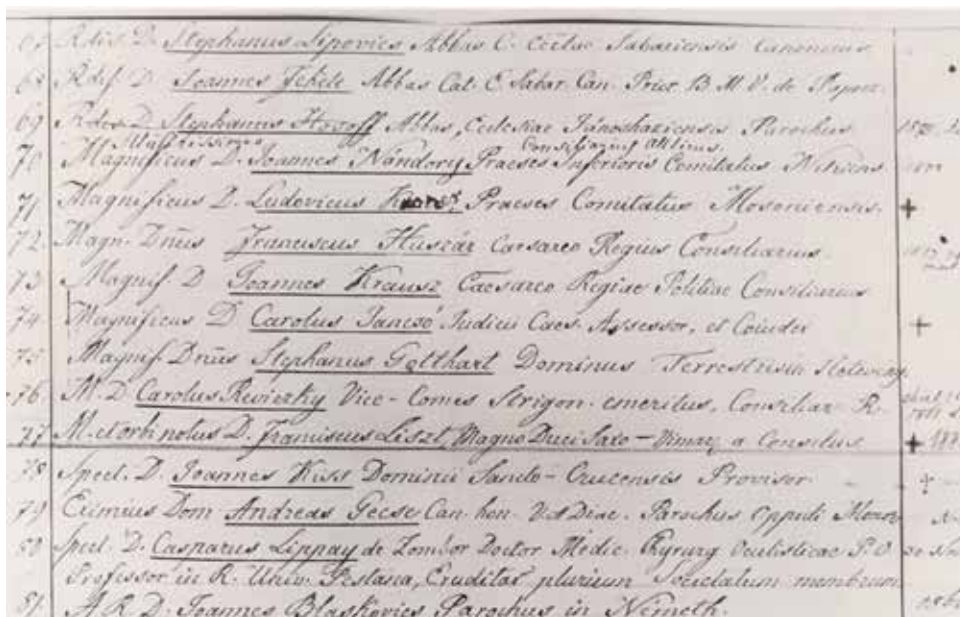 67 Rdis. D. Stephanus Lipovics Abbas C. Eccae Sabariensis Canonicus
68 Rdis. D. Joannes Fekete Abbas Cat. E. Sabar. Can. Prior B. M. V. de
69 Rdis. D. Stephanus Abbas, Ecclesiae Jánosháziensis Parochus
Consiliarius
70 Magnificus D. Joannes Nándory Praeses Inferioris Comitatus Nitriens.
71 Magnificus D. Ludovicus Praeses Comitatus Mosoniensis. +
72 Magn. Dnus Franciscus Huszár Caesareo Regius Consiliarius
73 Magnif. D Joannes Krausz Caesareo Regiae Politiae Consiliarius
74 Magnificus D Carolus Jancsó Judicii Caes. Assessor, et +
75 Magnif. Dnus Stephanus Gotthart Dominus Terrestris in
76 M. D. Carolus Reviczky Vice-Comes Strigon. emeritus, Consiliar. R.
77 M. et D. Franciscus Liszt, Magno Duci Saxo-Vimar. a Consiliis +
78 Spect. D. Joannes Kiss Dominii Sancto-Crucensis Provisor +
79 Eximius Dom Andreas Gecse Can. hon. V. A Diac. Parochus Oppidi
80 Spect. D. Casparus Lippay de Zombor Doctor Medic. Chyrurg. Oculisticae P. O.
Professor in R. Univ. Pestana, Eruditar. plurium Societatum membrum
81. A. R. D. Joannes Blaskovics Parochus in Németh.